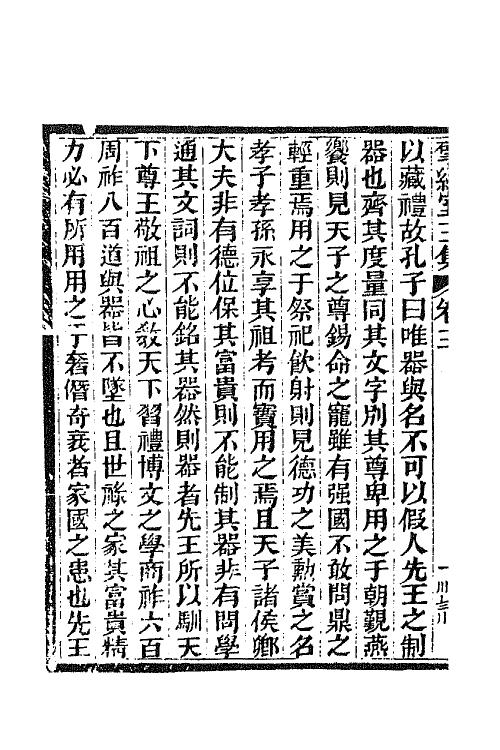 揅經室三集 卷三
以藏禮故孔子曰唯器與名不可以假人先王之制
器也齊其度量同其文字別其尊卑用之于朝覲燕
饗則見天子之尊錫命之寵雖有强國不敢問鼎之
輕重焉用之于祭祀飲射則見德功之美勳賞之名
孝子孝孫永享其祖考而寶用之焉且天子諸侯卿
大夫非有德位保其富貴則不能制其器非有問學
通其文詞則不能銘其器然則器者先王所以馴天
下尊王敬祖之心敎天下習禮博文之學商祚六百
周祚八百道與器皆不墜也且世祿之家其富貴精
力必有所用用之于奢僭奇衺者家國之患也先王